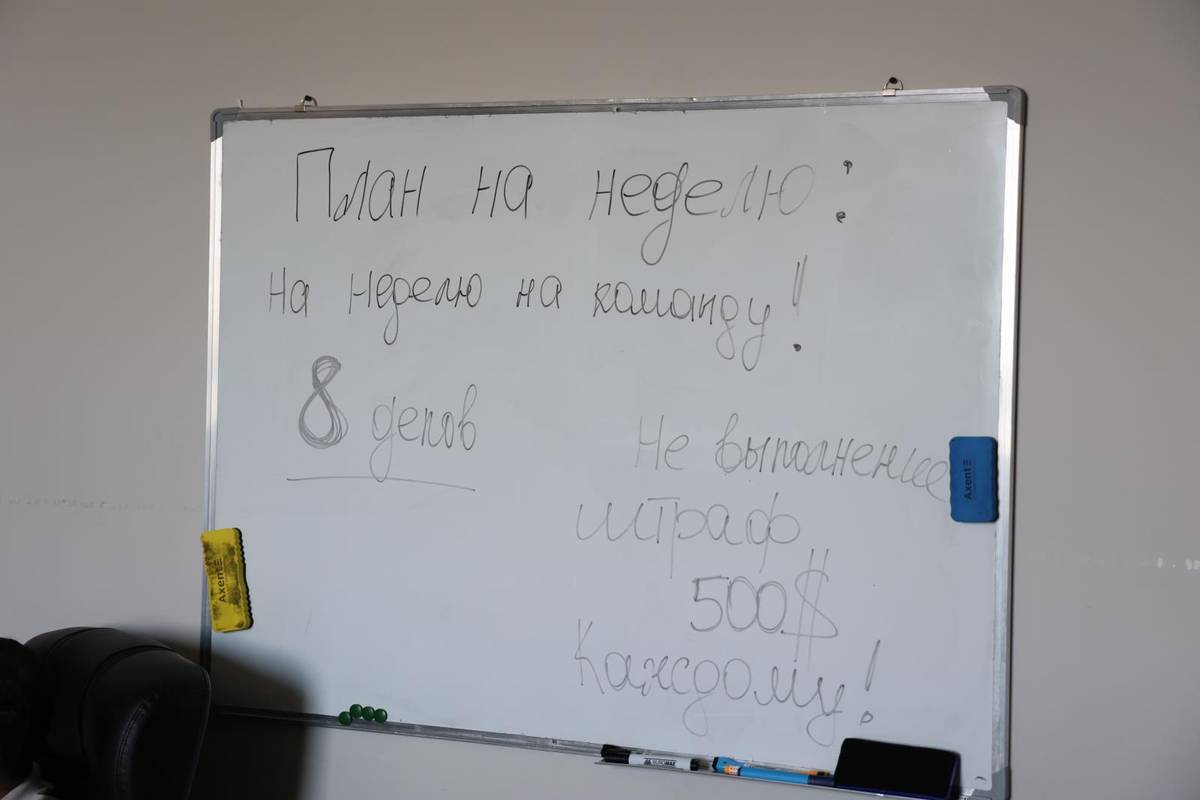 План на неделю:
на неделю на команду!
8 депов
Не выполнение
штраф
500$
Каждому!
Axent
Axent
BUROMAX